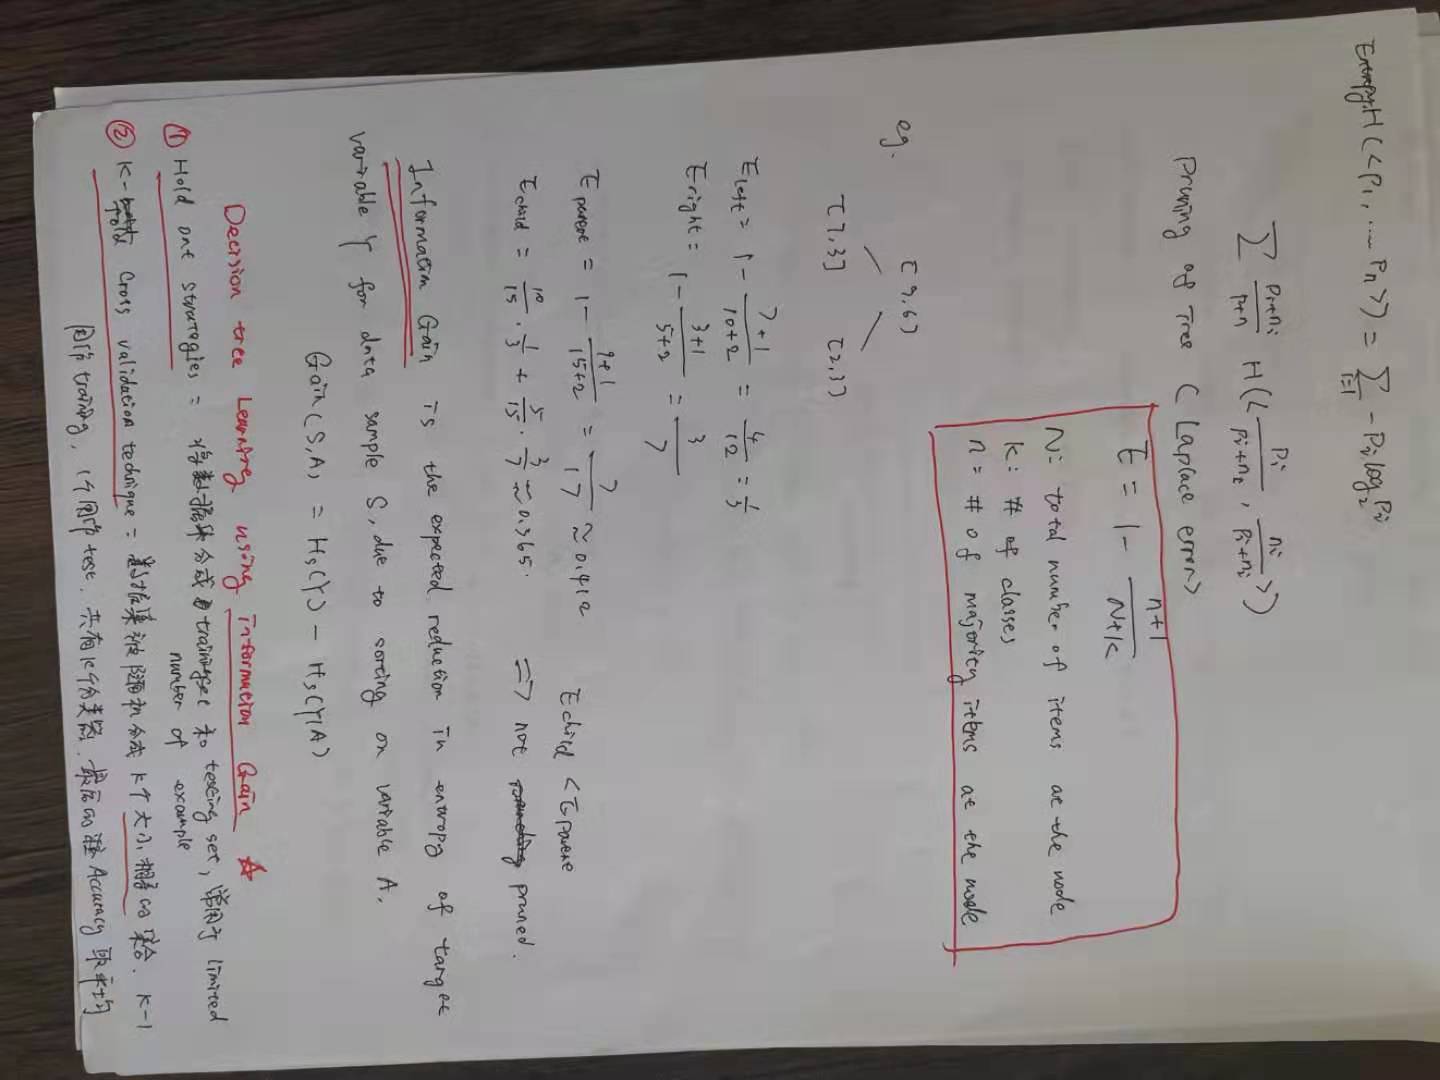 Entropy H(<P₁, ..... Pn>) = Σ_{i=1} - Pi log₂ Pi
Σ (pi+ni)/(p+n) H(< pi/(pi+ni), ni/(pi+ni) >)
Pruning of Tree ( Laplace error)
E = 1 - (n+1)/(N+k)
N: total number of items at the node
k: # of classes
n = # of majority items at the node
eg.
[9,6]
[7,3] [2,3]
E left = 1 - (7+1)/(10+2) = 4/12 = 1/3
E right = 1 - (3+1)/(5+2) = 3/7
E parent = 1 - (9+1)/(15+2) = 7/17 ≈ 0.412
E child < E parent
E child = 10/15 · 1/3 + 5/15 · 3/7 ≈ 0.365. => not pruned.
Information Gain is the expected reduction in entropy of target
variable Y for data sample S, due to sorting on variable A.
Gain(S,A) = Hs(Y) - Hs(Y|A)
Decision tree Learning using information Gain ☆
① Hold out strategies = 将数据集分成 training set 和 testing set, 常用于 limited
number of example
② K-fold Cross validation technique = 数据集被随机分成 K个大小相等的集合. K-1
用作 training, 1个用作 test. 共有K个分类器. 最后的 Accuracy 取平均